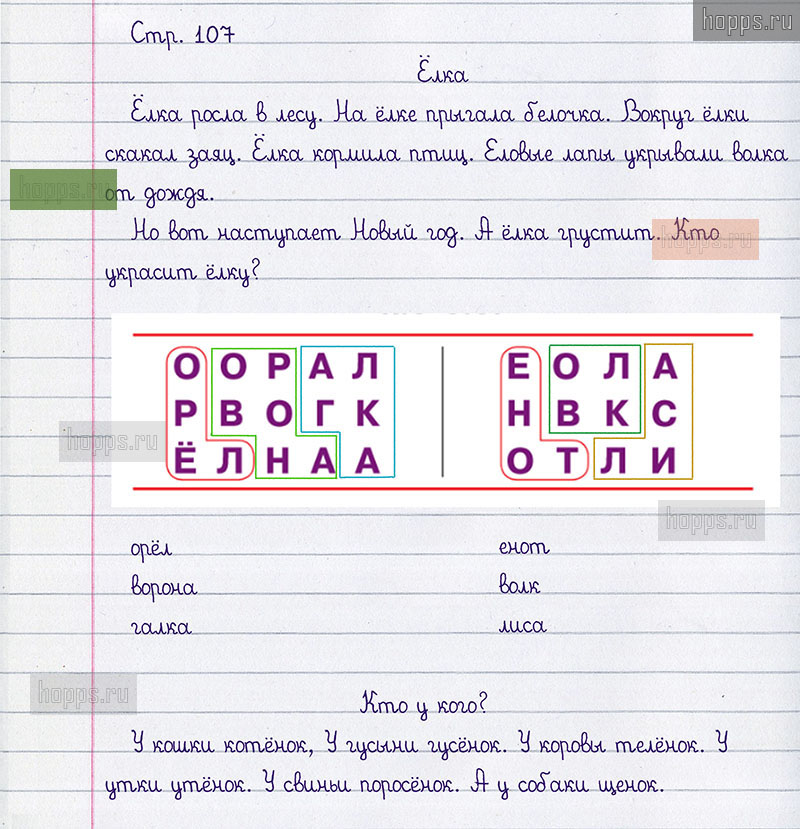 hopps.ru
Стр. 107
Ёлка
Ёлка росла в лесу. На ёлке прыгала белочка. Вокруг ёлки
скакал заяц. Ёлка кормила птиц. Еловые лапы укрывали волка
hopps.ru
от дождя.
Но вот наступает Новый год. А ёлка грустит. Кто
hopps.ru
украсит ёлку?
О О Р А Л
Р В О Г К
Ё Л Н А А
Е О Л А
Н В К С
О Т Л И
hopps.ru
hopps.ru
орёл
ворона
галка
енот
волк
лиса
hopps.ru
Кто у кого?
У кошки котёнок, У гусыни гусёнок. У коровы телёнок. У
утки утёнок. У свиньи поросёнок. А у собаки щенок.